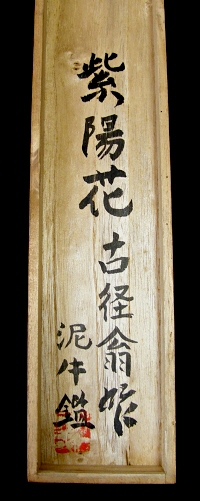 紫陽花
古径翁作
泥牛鑑